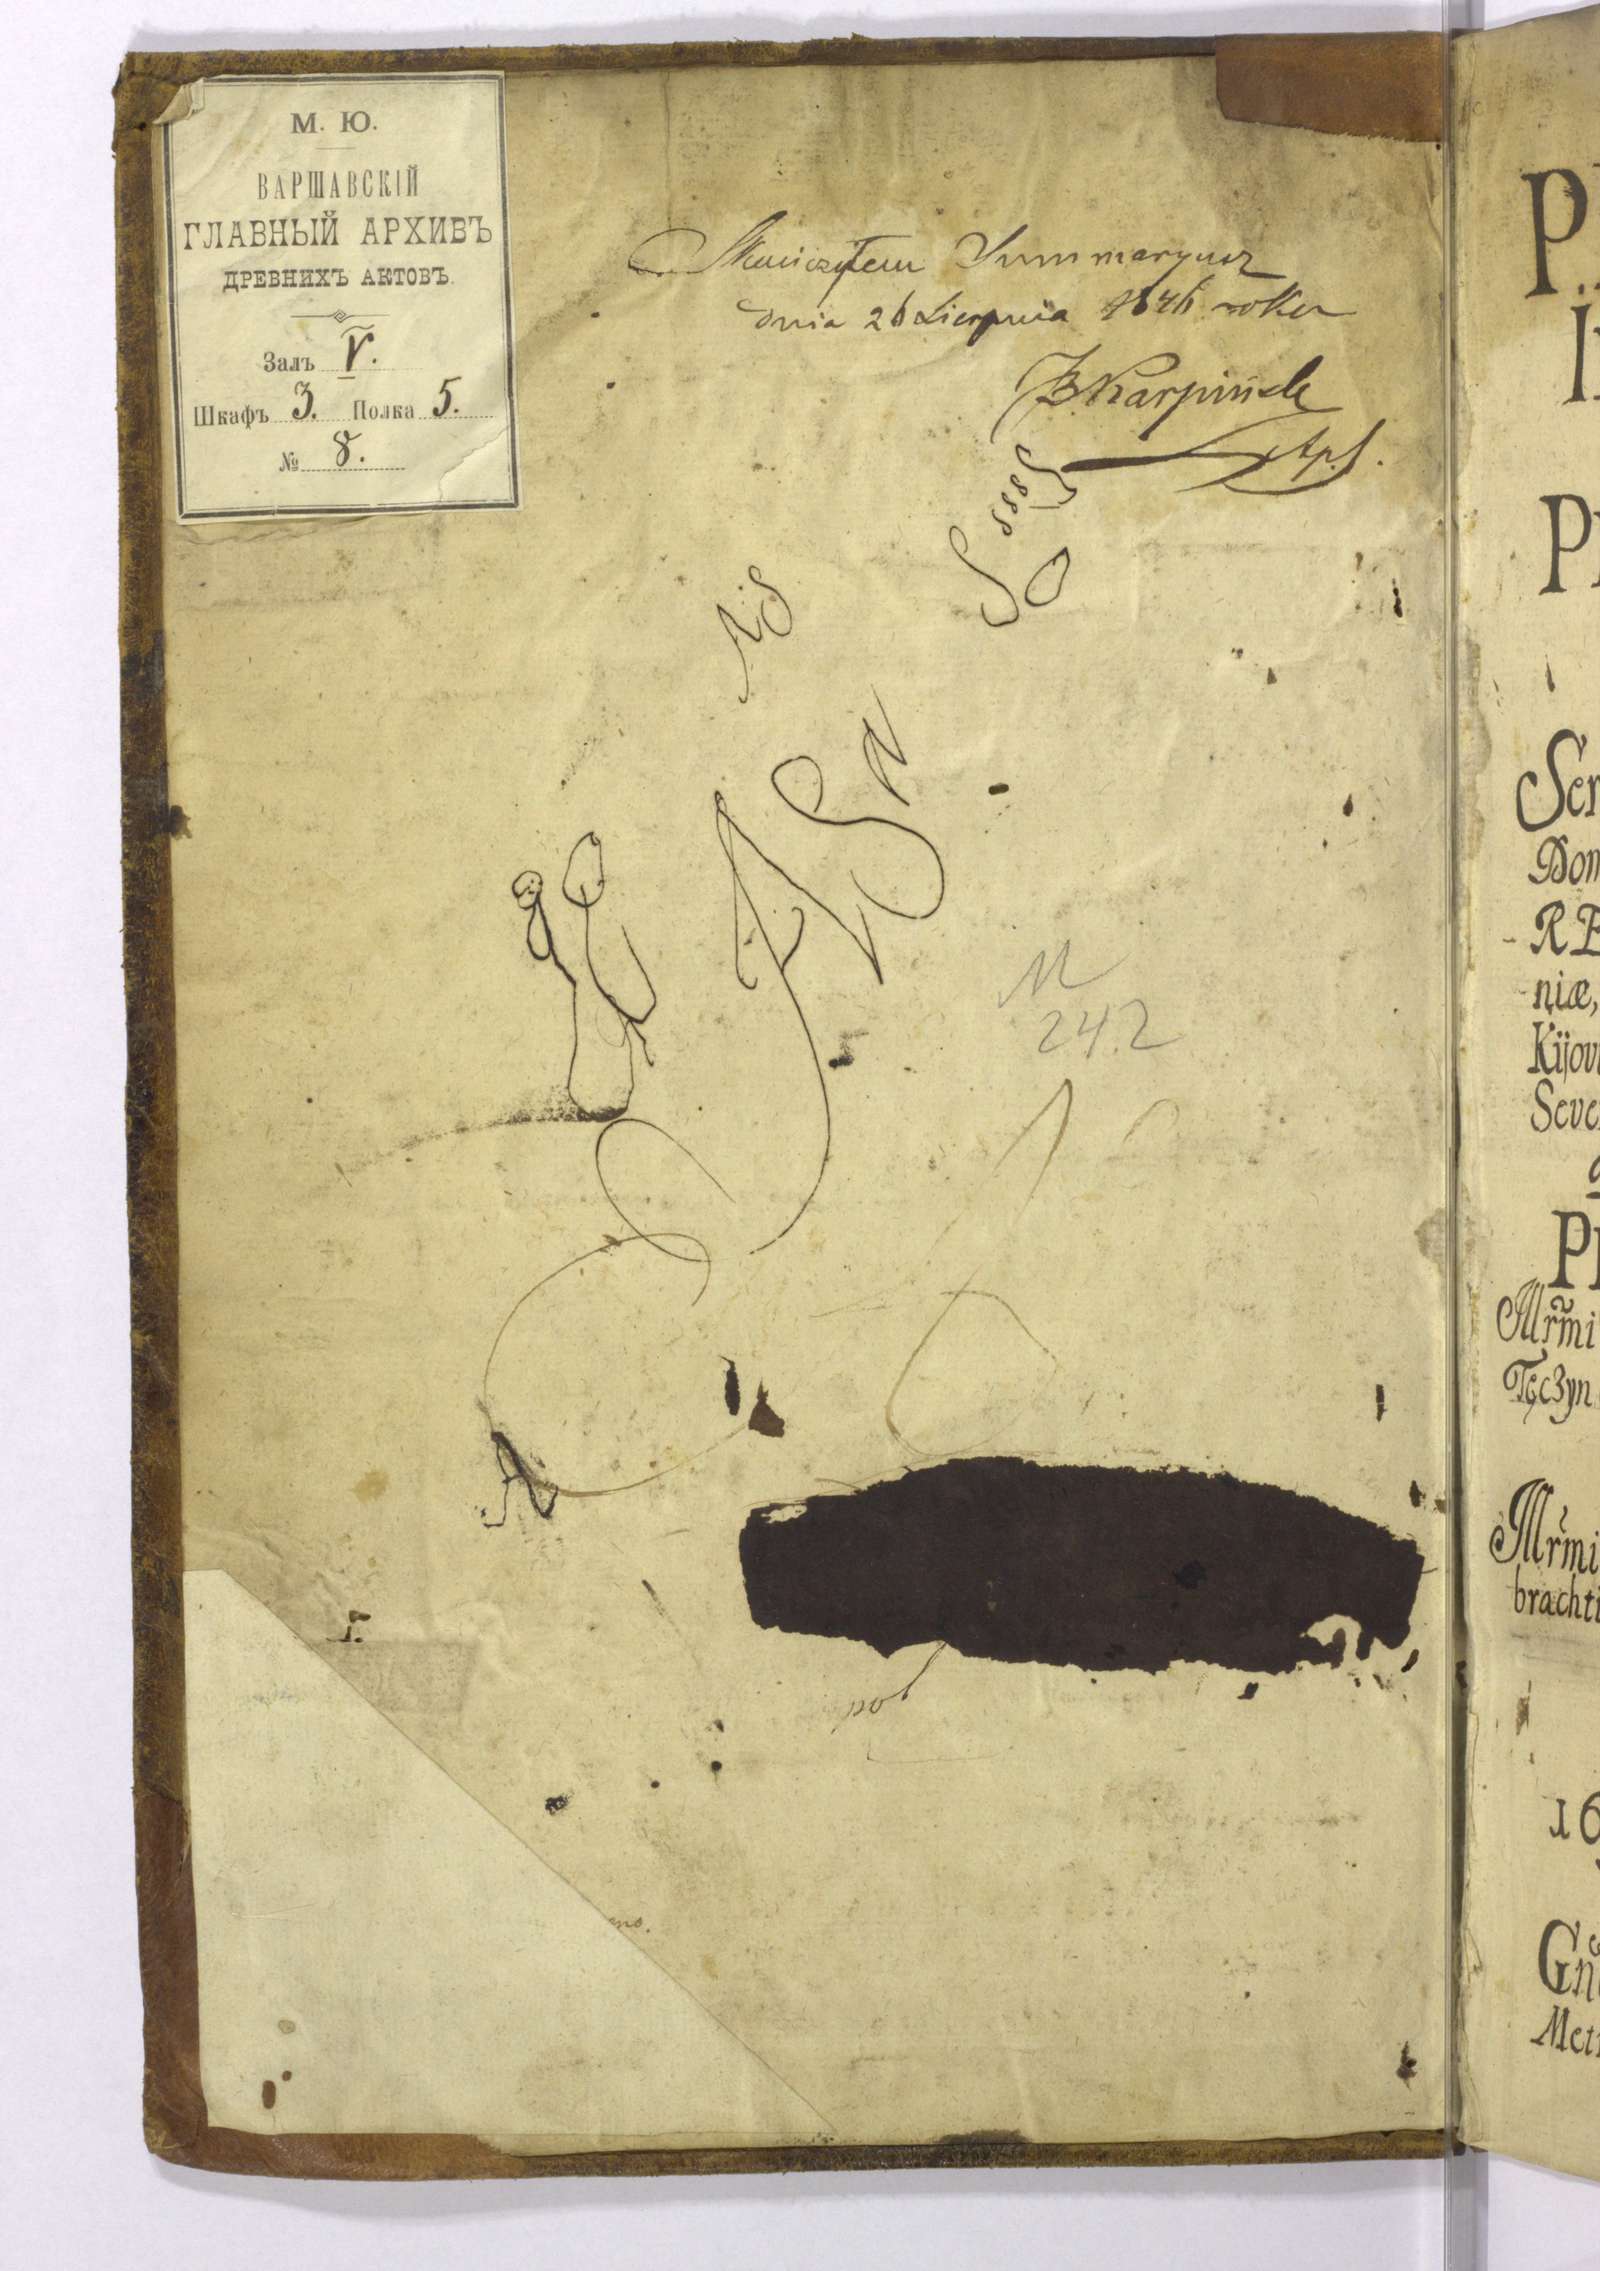 М. Ю.
ВАРШАВСКІЙ
ГЛАВНЫЙ АРХИВЪ
ДРЕВНИХЪ АКТОВЪ.
Залъ V.
Шкафъ 3. Полка 5.
№ 8.
Skończyłem Summaryusz
dnia 26 Sierpnia 1846 roku
Karpiński
Apl.
M
242
Ser
Dom
RE
niæ,
Kijov
Seve
Mrmi
Tęczyn
Mrmi
brachti
16
Gn
Met